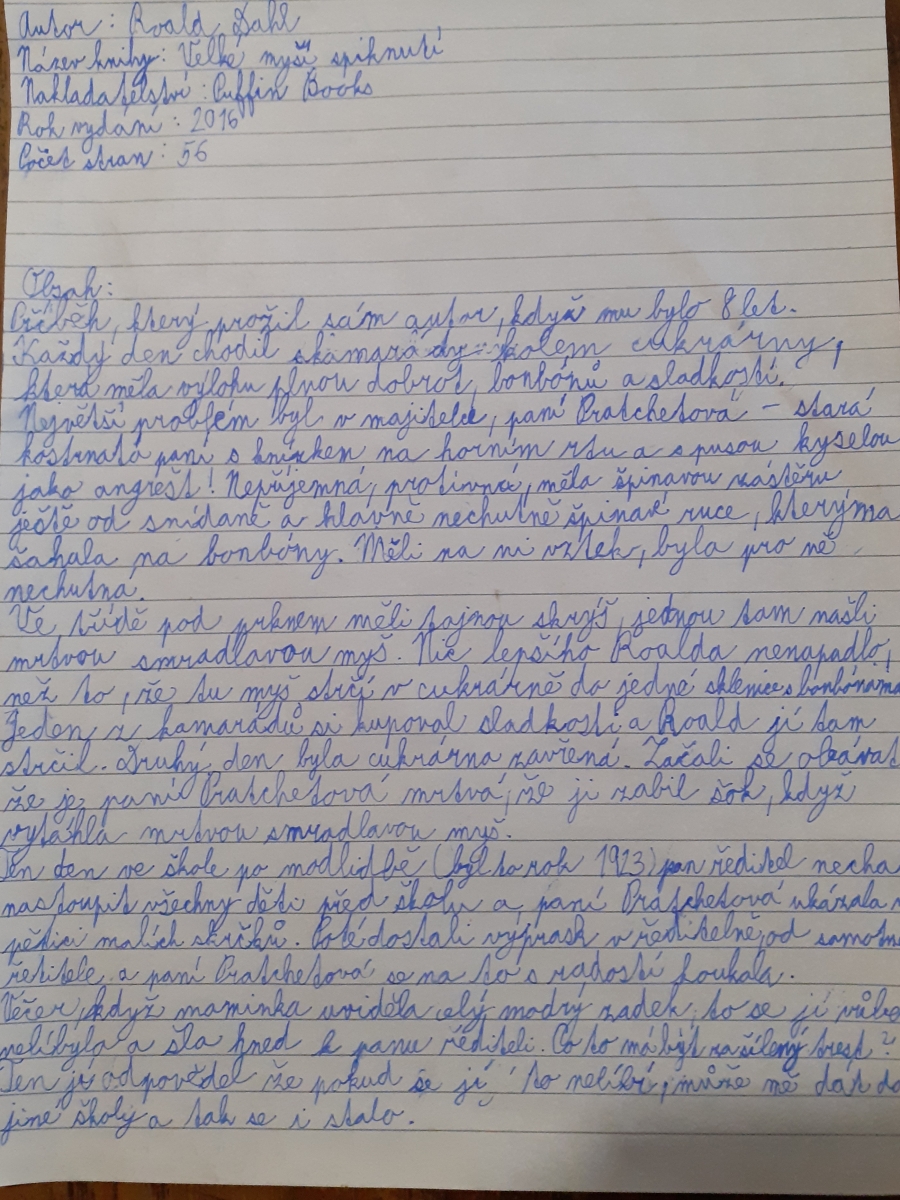 Autor: Roald Dahl
Název knihy: Velké myší spiknutí
Nakladatelství: Puffin Books
Rok vydání: 2016
Počet stran: 56
Obsah:
Příběh, který prožil sám autor, když mu bylo 8 let.
Každý den chodil s kamarády kolem cukrárny,
která měla výlohu plnou dobrot, bonbónů a sladkostí.
Největší problém byl v majitelce, paní Pratchetová – stará
kostnatá paní s knírkem na horním rtu a s pusou kyselou
jako angrešt! Nepříjemná, protivná, měla špinavou zástěru
ještě od snídaně a hlavně nechutně špinavé ruce, kterýma
sahala na bonbóny. Měli na ni vztek, byla pro ně
nechutná.
Ve třídě pod prknem měli tajnou skrýš, jednou tam našli
mrtvou smradlavou myš. Nic lepšího Roalda nenapadlo,
než to, že tu myš strčí v cukrárně do jedné sklenice s bonbónama
Jeden z kamarádů si kupoval sladkosti a Roald jí tam
strčil. Druhý den byla cukrárna zavřená. Začali se obávat
že je paní Pratchetová mrtvá, že ji zabil šok, když
vytáhla mrtvou smradlavou myš.
Ten den ve škole po modlidbě (byl to rok 1923) pan ředitel necha
nastoupit všechny děti před školu a paní Pratchetová ukázala
pětici malích skřítků. Poté dostali výprask v ředitelně, od samotné
ředitele a paní Pratchetová se na to s radostí koukala.
Večer, když maminka uviděla celý modrý zadek, to se jí vůbe
nelíbylo a šla hned k panu řediteli. Co to má být za šílený trest?
Ten jí odpověděl že pokud se jí to nelíbí, může mě dát do
jiné školy a tak se i stalo.